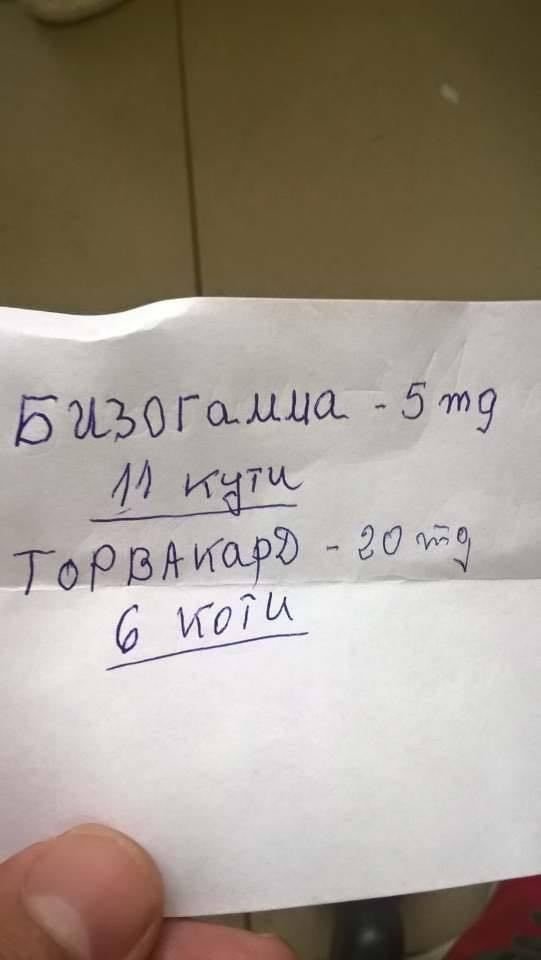 БИЗОГАММА - 5 mg
11 кути
ТОРВАКАРД - 20 mg
6 коти